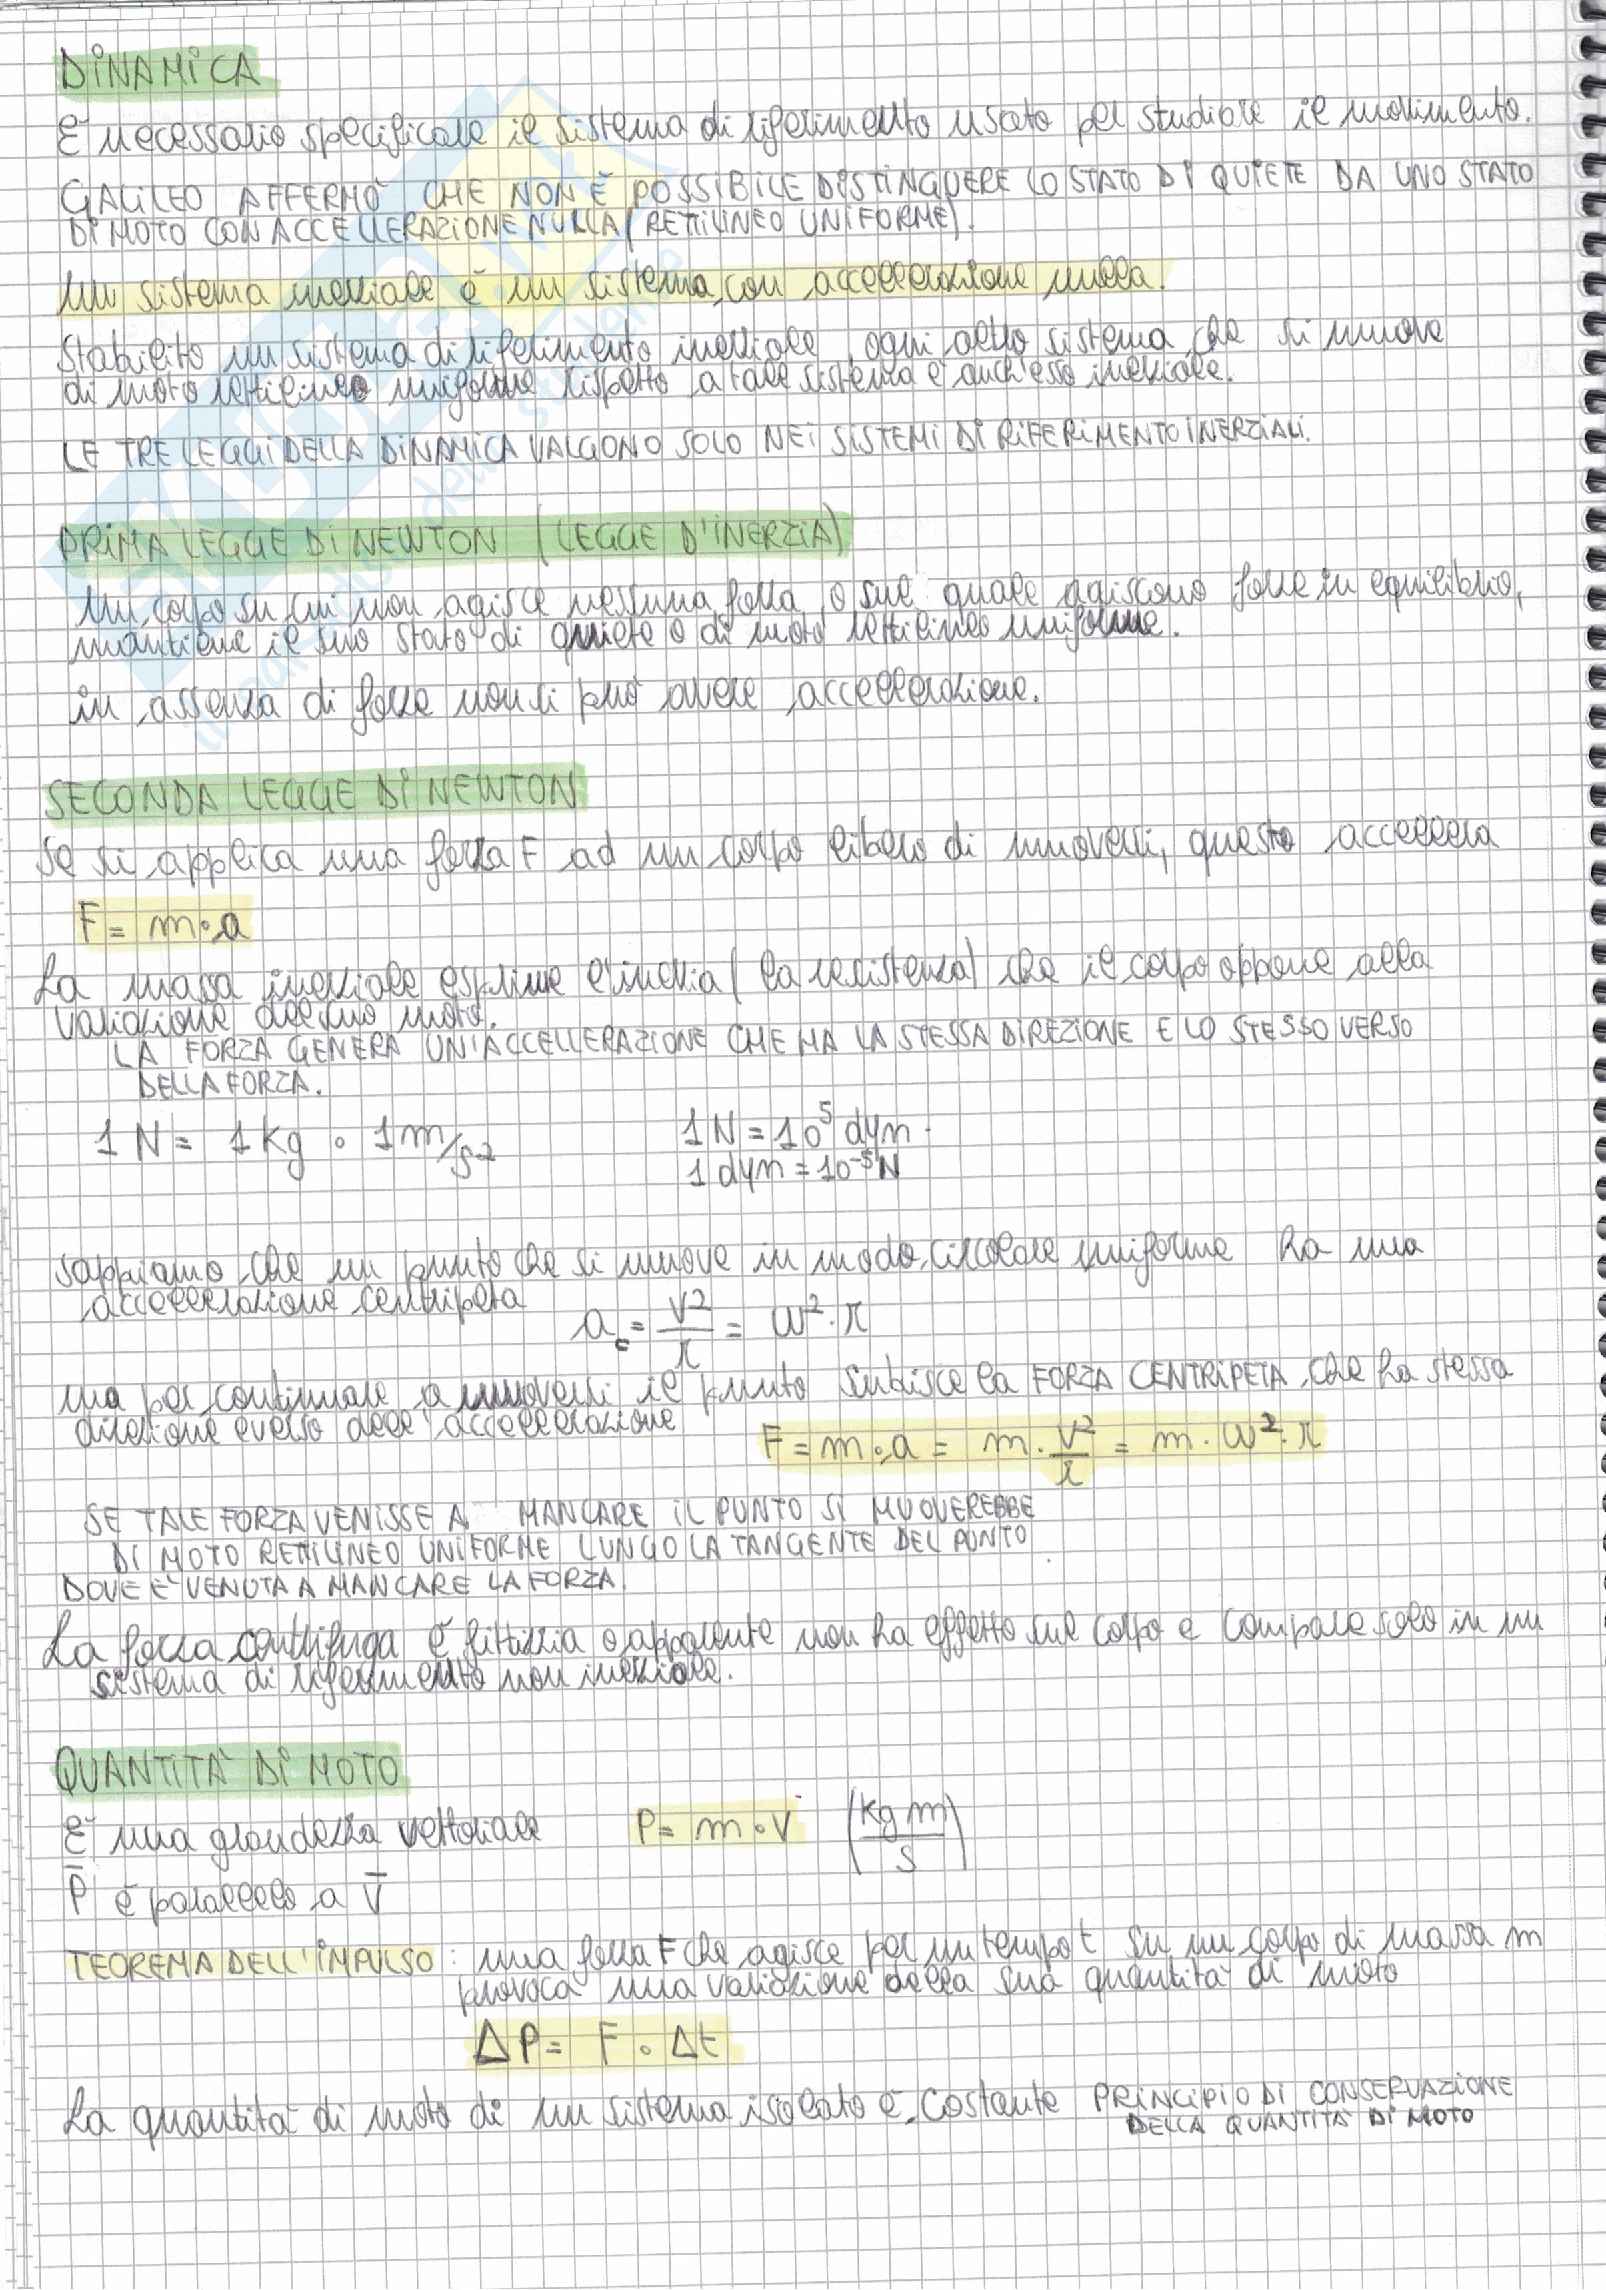 DINAMICA
È necessario specificare il sistema di riferimento usato per studiare il movimento.
GALILEO AFFERMÒ CHE NON È POSSIBILE DISTINGUERE LO STATO DI QUIETE DA UNO STATO
DI MOTO CON ACCELLERAZIONE NULLA (RETTILINEO UNIFORME).
Un sistema inerziale è un sistema con accellerazione nulla.
Stabilito un sistema di riferimento inerziale, ogni altro sistema che si muove
di moto rettilineo uniforme rispetto a tale sistema è anch'esso inerziale.
LE TRE LEGGI DELLA DINAMICA VALGONO SOLO NEI SISTEMI DI RIFERIMENTO INERZIALI.
PRIMA LEGGE DI NEWTON (LEGGE D'INERZIA)
Un corpo su cui non agisce nessuna forza o sul quale agiscono forze in equilibrio,
mantiene il suo stato di quiete o di moto rettilineo uniforme.
in assenza di forze non si può avere accellerazione.
SECONDA LEGGE DI NEWTON
Se si applica una forza F ad un corpo libero di muoversi, questo accellera
F = m·a
La massa inerziale esprime l'inerzia (la resistenza) che il corpo oppone alla
variazione del suo moto.
LA FORZA GENERA UN'ACCELLERAZIONE CHE HA LA STESSA DIREZIONE E LO STESSO VERSO
DELLA FORZA.
1 N = 1 Kg · 1 m/s² 1 N = 10⁵ dyn
1 dyn = 10⁻⁵ N
Sappiamo che un punto che si muove in modo circolare uniforme ha una
accellerazione centripeta a_c = v²/r = ω²·r
ma per continuare a muoversi il punto subisce la FORZA CENTRIPETA, che ha stessa
direzione e verso dell'accellerazione F = m·a = m·v²/r = m·ω²·r
SE TALE FORZA VENISSE A MANCARE IL PUNTO SI MUOVEREBBE
DI MOTO RETTILINEO UNIFORME LUNGO LA TANGENTE DEL PUNTO
DOVE È VENUTA A MANCARE LA FORZA.
La forza centrifuga è fittizzia o apparente non ha effetto sul corpo e compare solo in un
sistema di riferimento non inerziale.
QUANTITÀ DI MOTO
È una grandezza vettoriale P = m·v (Kg m/s)
P̄ è parallelo a V̄
TEOREMA DELL'IMPULSO: una forza F che agisce per un tempo t su un corpo di massa m
provoca una variazione della sua quantità di moto
ΔP = F · Δt
La quantità di moto di un sistema isolato è costante PRINCIPIO DI CONSERVAZIONE
DELLA QUANTITÀ DI MOTO